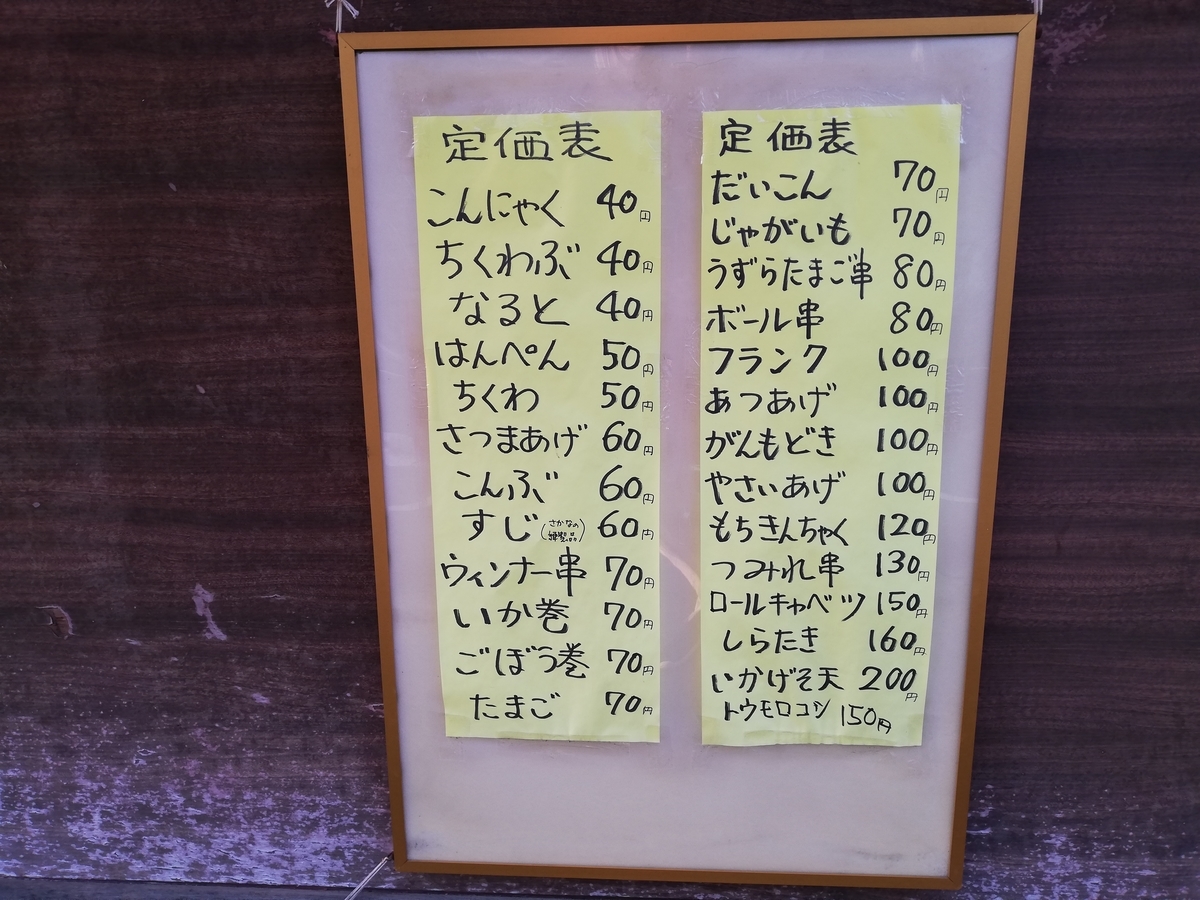 定価表
こんにゃく 40円
ちくわぶ 40円
なると 40円
はんぺん 50円
ちくわ 50円
さつまあげ 60円
こんぶ 60円
すじ(さかなの練製品) 60円
ウィンナー串 70円
いか巻 70円
ごぼう巻 70円
たまご 70円
定価表
だいこん 70円
じゃがいも 70円
うずらたまご串 80円
ボール串 80円
フランク 100円
あつあげ 100円
がんもどき 100円
やさいあげ 100円
もちきんちゃく 120円
つみれ串 130円
ロールキャベツ 150円
しらたき 160円
いかげそ天 200円
トウモロコシ 150円